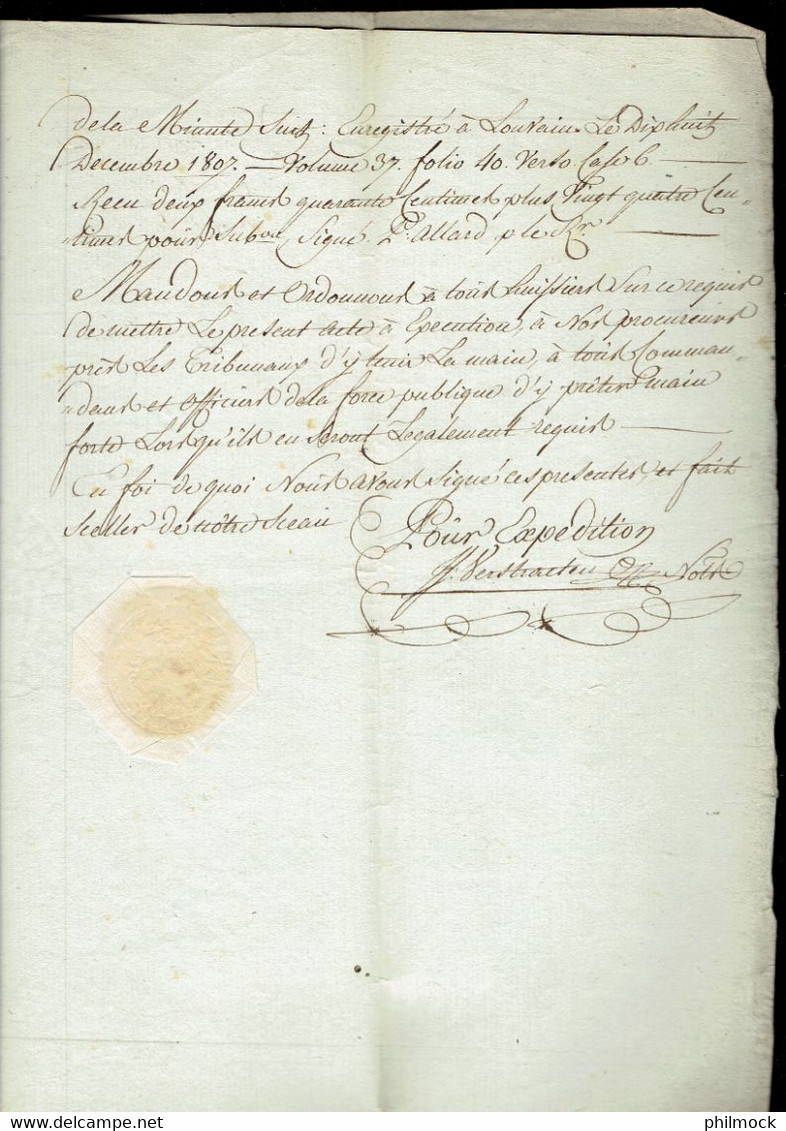 de la Minute Suit: Enregistré à Louvain Le Dix huit
Decembre 1807. — Volume 37. folio 40. Verso Case 6 —
Recu deux francs quarante Centimes plus Vingt quatre Cen-
times pour Subon. Signé P. Allard p le Rr.
Mandons et Ordonnons à tous huissiers Sur ce requis
de mettre Le present Acte à Execution, à Nos procureurs
près Les Tribunaux d'y tenir La main, à tous Comman-
dans et Officiers de la force publique d'y prêter main
forte Lors qu'ils en Seront Legalement requis —
En foi de quoi Nous avons Signé ces presentes, et fait
Sceller de nôtre Sceau
Pour Expedition
Verstraeten Notre
philmock